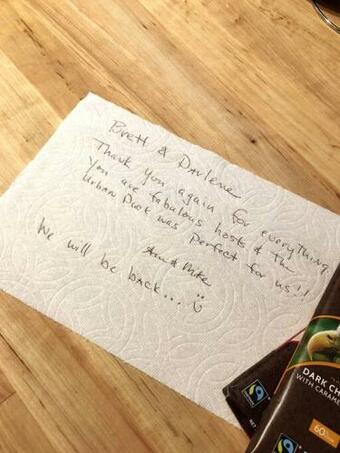 Brett & Darlene
Thank you again for everything
You are fabulous hosts & the
Urban Duck was perfect for us!!
& Mike
We will be back... :)
DARK CH
WITH CARAME
60